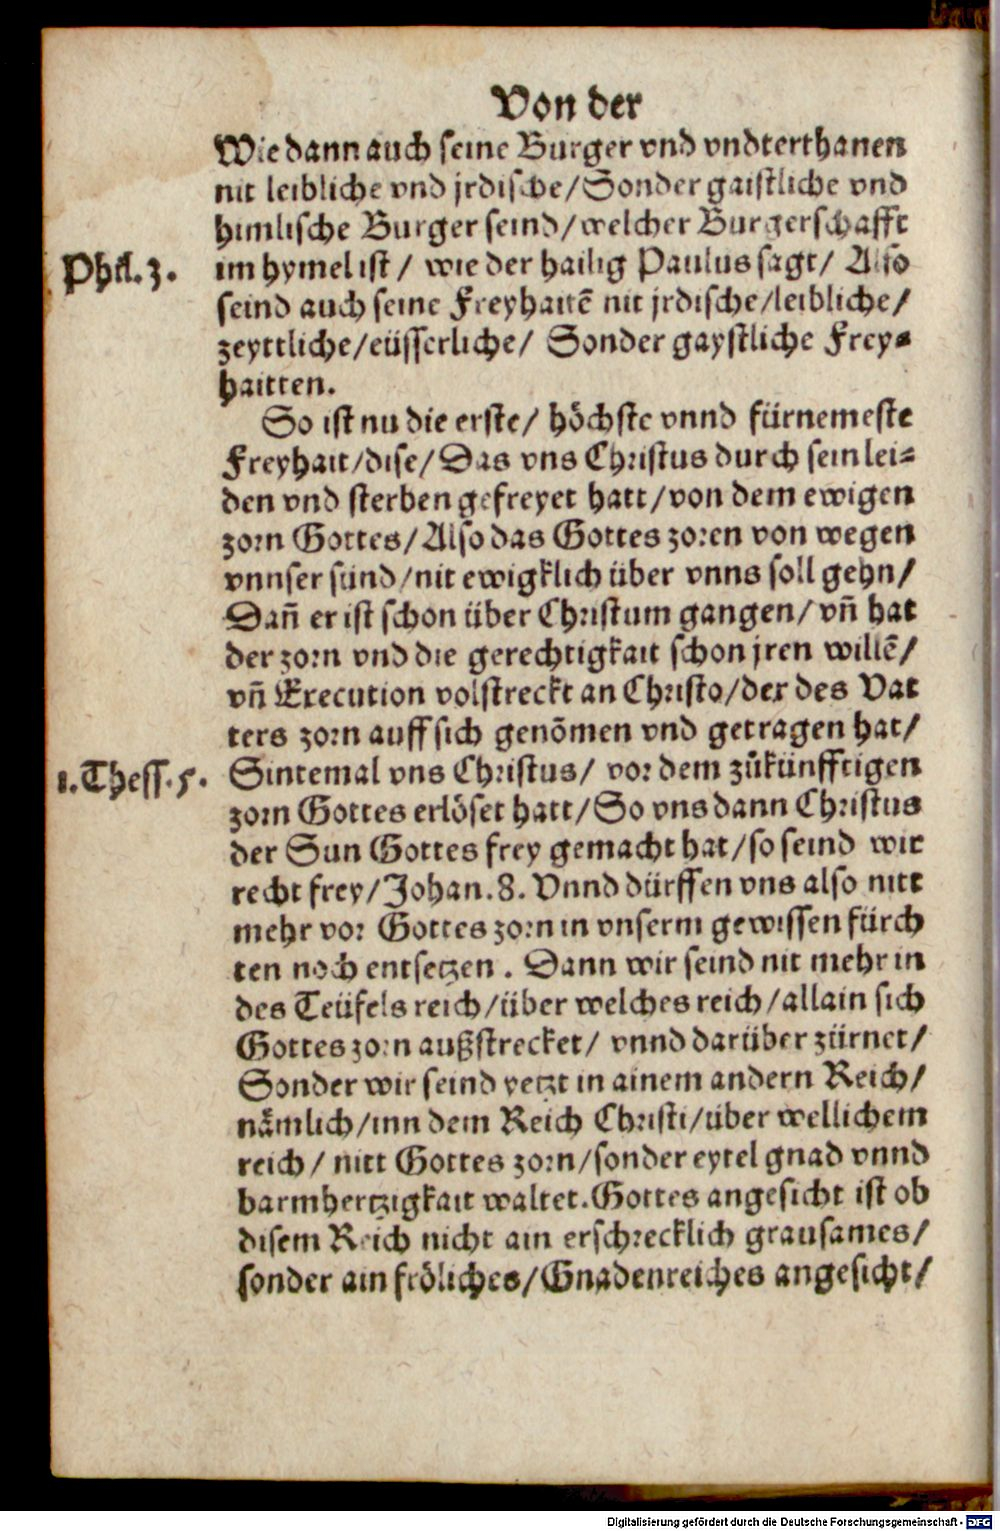 Von der
Wie dann auch seine Burger vnd vndterthanen
nit leibliche vnd jrdische/Sonder gaistliche vnd
himlische Burger seind/welcher Burgerschafft
Phil. 3.
im hymel ist/ wie der hailig Paulus sagt/ Also
seind auch seine Freyhaitẽ nit jrdische/leibliche/
zeyttliche/eüsserliche/ Sonder gaystliche Frey⸗
haitten.
So ist nu die erste/ höchste vnnd fürnemeste
Freyhait/dise/Das vns Christus durch sein lei⸗
den vnd sterben gefreyet hatt/von dem ewigen
zorn Gottes/Also das Gottes zoren von wegen
vnnser sünd/nit ewigklich über vnns soll gehn/
Dañ er ist schon über Christum gangen/ vñ hat
der zorn vnd die gerechtigkait schon jren willẽ/
vñ Execution volstreckt an Christo/der des Vat
ters zorn auff sich genõmen vnd getragen hat/
1. Thess. 5.
Sintemal vns Christus/ vor dem zůkünfftigen
zorn Gottes erlöset hatt/So vns dann Christus
der Sun Gottes frey gemacht hat/so seind wir
recht frey/Johan. 8. Vnnd dürffen vns also nitt
mehr vor Gottes zorn in vnserm gewissen fürch
ten noch entsetzen. Dann wir seind nit mehr in
des Teüfels reich/über welches reich/allain sich
Gottes zorn außstrecket/ vnnd darüber zürnet/
Sonder wir seind yetzt in ainem andern Reich/
nämlich/inn dem Reich Christi/über wellichem
reich/ nitt Gottes zorn/sonder eytel gnad vnnd
barmhertzigkait waltet. Gottes angesicht ist ob
disem Reich nicht ain erschrecklich grausames/
sonder ain fröliches/Gnadenreiches angesicht/
Digitalisierung gefördert durch die Deutsche Forschungsgemeinschaft - DFG